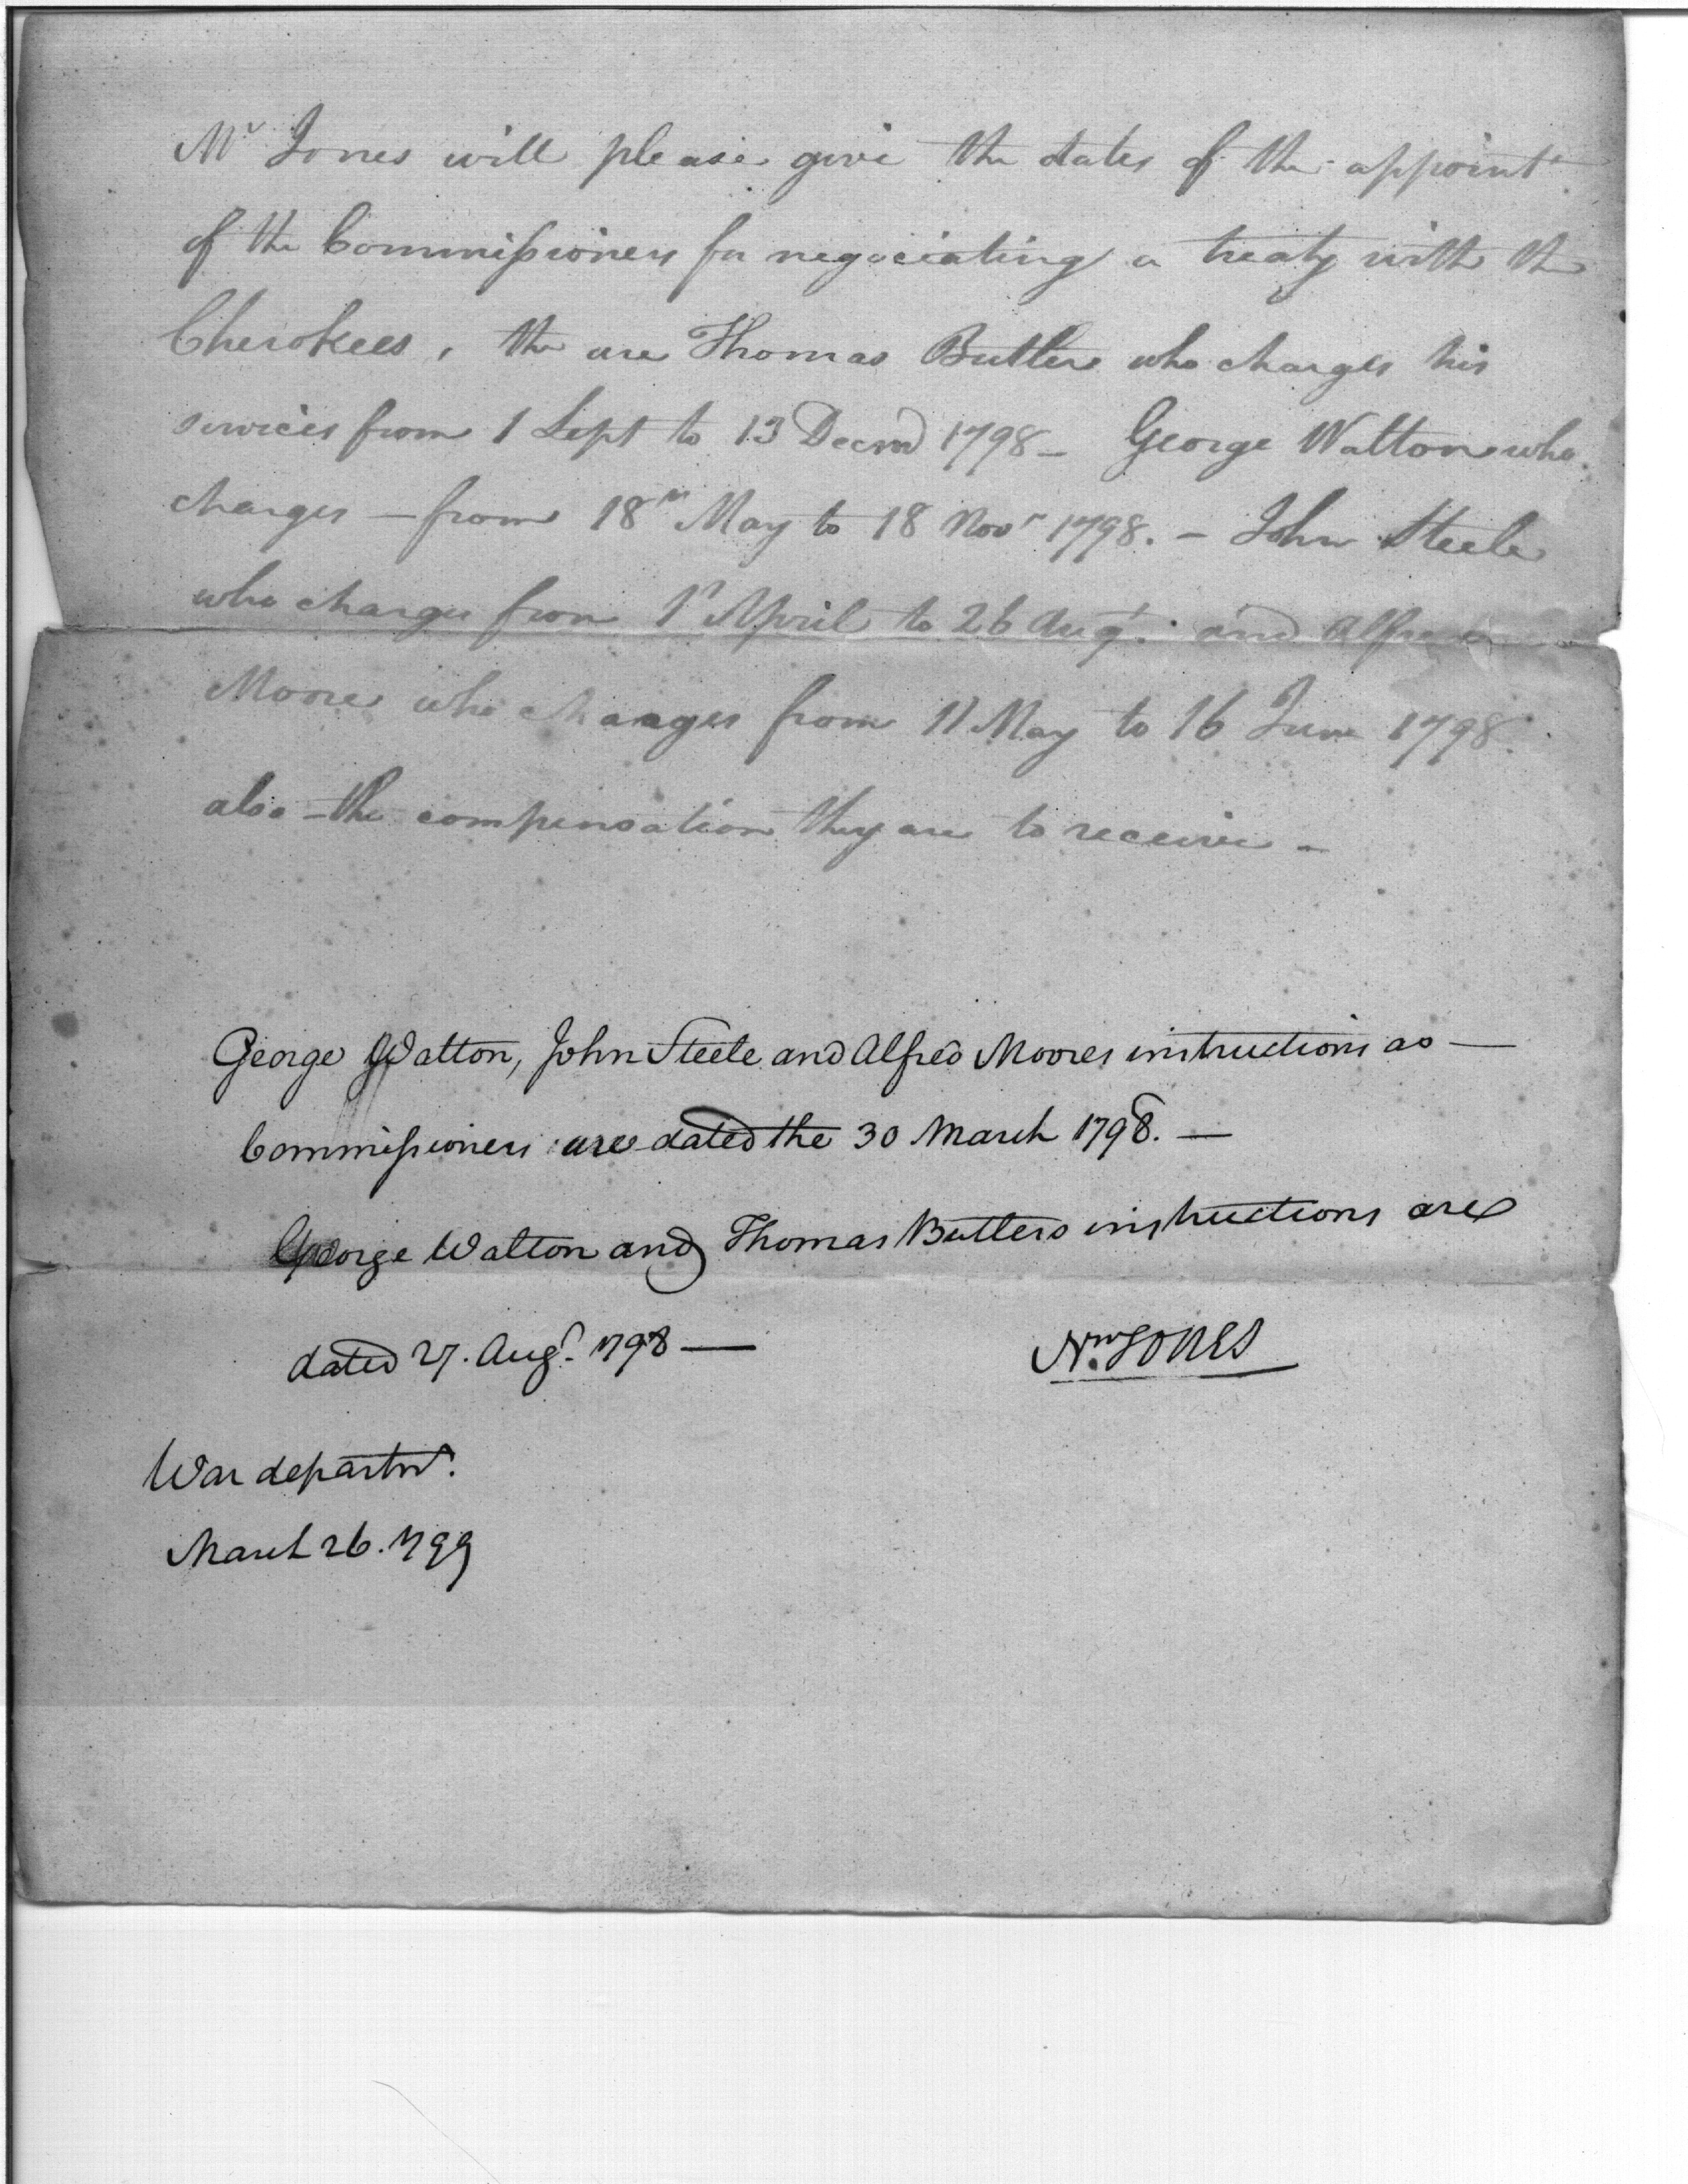 Mr Jones will please give the dates of the appoint
of the Commissioners for negociating a treaty with the
Cherokees, the are Thomas Butler who charges his
services from 1 Sept to 13 Decem 1798 – George Walton who
charges – from 18th May to 18 Novr 1798. – John Steele
who charges from 1st April to 26 Augt. and Alfred
Moore who charges from 11 May to 16 June 1798.
also – the compensation they are to receive –
George Walton, John Steele and Alfred Moores instructions as —
Commissioners are dated the 30 March 1798. —
George Walton and Thomas Butlers instructions are
dated 27. Augt. 1798 —
Nw. Jones
War departmt.
March 26. 1799